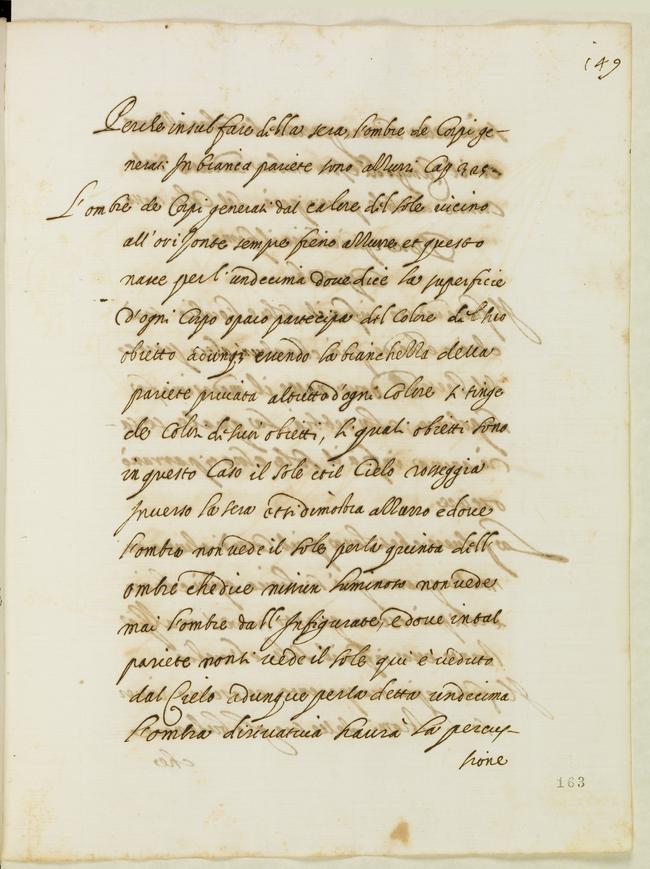 149
Perche in sul fare della sera, l'ombre de Corpi ge-
nerati In bianca pariete sono azzurri Cap 325-
L'ombre de Corpi generati dal calore del sole vicino
all'orizonte sempre fieno azzure et questo
nasce per l'undecima dove dice la superficie
d'ogni Corpo opaco partecipa del Colore del suo
obietto adunq; evendo la bianchezza della
pariete privata al tutto d'ogni Colore si tinge
de Colori di suoi obietti, li quali obietti sono
in questo Caso il sole et il Cielo rosseggia
Inverso la sera et si dimostra azzurro e dove
l'ombra non vede il sole per la quinta dell
ombre che dice nissun luminoso non vede
mai l'ombre dall' Infigurate, e dove in tal
pariete non si vede il sole qui è veduto
dal Cielo adunque per la detta undecima
l'ombra dirivativa havrà la percus-
sione
163